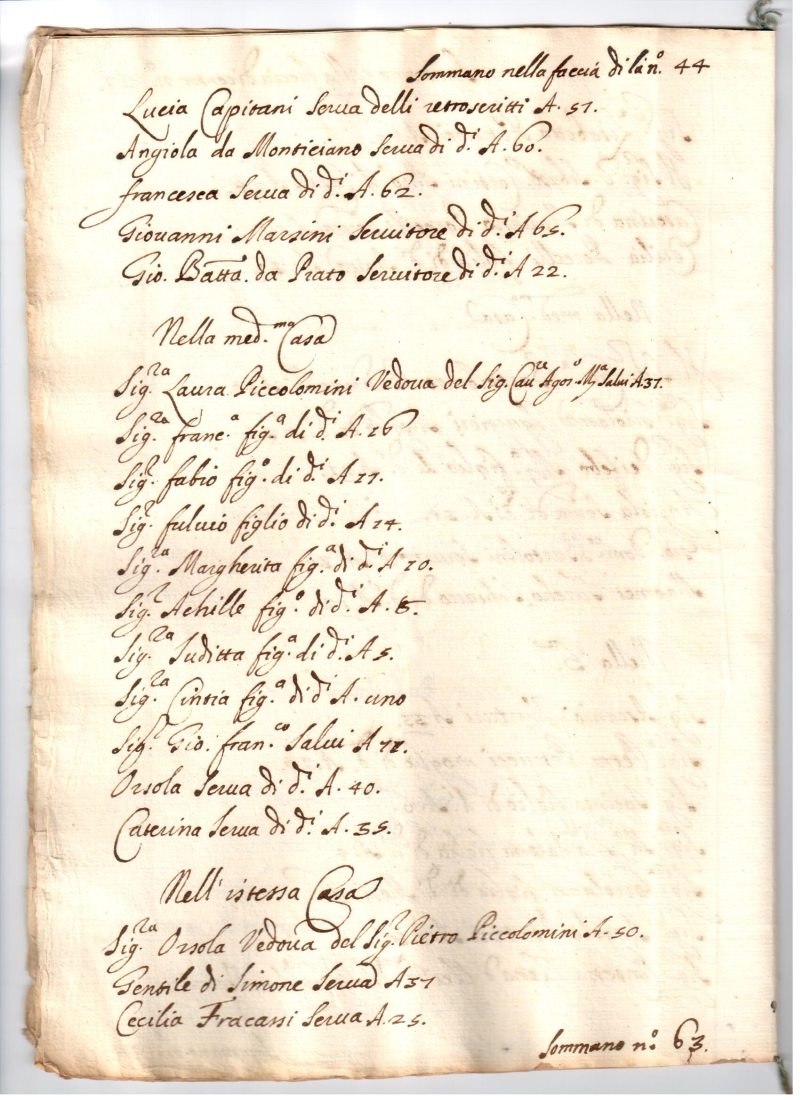 Sommano nella faccia di là n.º 44
Lucia Capitani Serva delli retroscritti A. 51.
Angiola da Monticiano Serva di d.ⁱ A. 60.
francesca Serva di d.ⁱ A. 62.
Giovanni Marsini Servitore di d.ⁱ A 65.
Gio. Batta. da Prato Servitore di d.ⁱ A 22.
Nella med.ᵐᵃ Casa
Sig.ʳᵃ Laura Piccolomini Vedova del Sig. Cau.ʳᵉ Agos.º Mª Salvi A 37.
Sig.ʳᵃ franc.ª fig.ª di d.ⁱ A. 16
Sig.ʳ fabio fig.º di d.ⁱ A 11.
Sig.ʳ fulvio figlio di d.ⁱ A 14.
Sig.ʳᵃ Margherita fig.ª di d.ⁱ A 10.
Sig.ʳ Achille fig.º di d.ⁱ A. 8.
Sig.ʳᵃ Iuditta fig.ª di d.ⁱ A 5.
Sig.ʳᵃ Cintia fig.ª di dⁱ A. uno
Sig.ʳ Gio. fran.ᶜᵒ Salvi A 71.
Orsola Serva di d.ⁱ A. 40.
Caterina Serva di d.ⁱ A. 35.
Nell' istessa Casa
Sig.ʳᵃ Orsola Vedova del Sig.ʳ Pietro Piccolomini A. 50.
Gentile di Simone Serva A 37
Cecilia Fracassi Serva A. 25.
Sommano n.º 63.